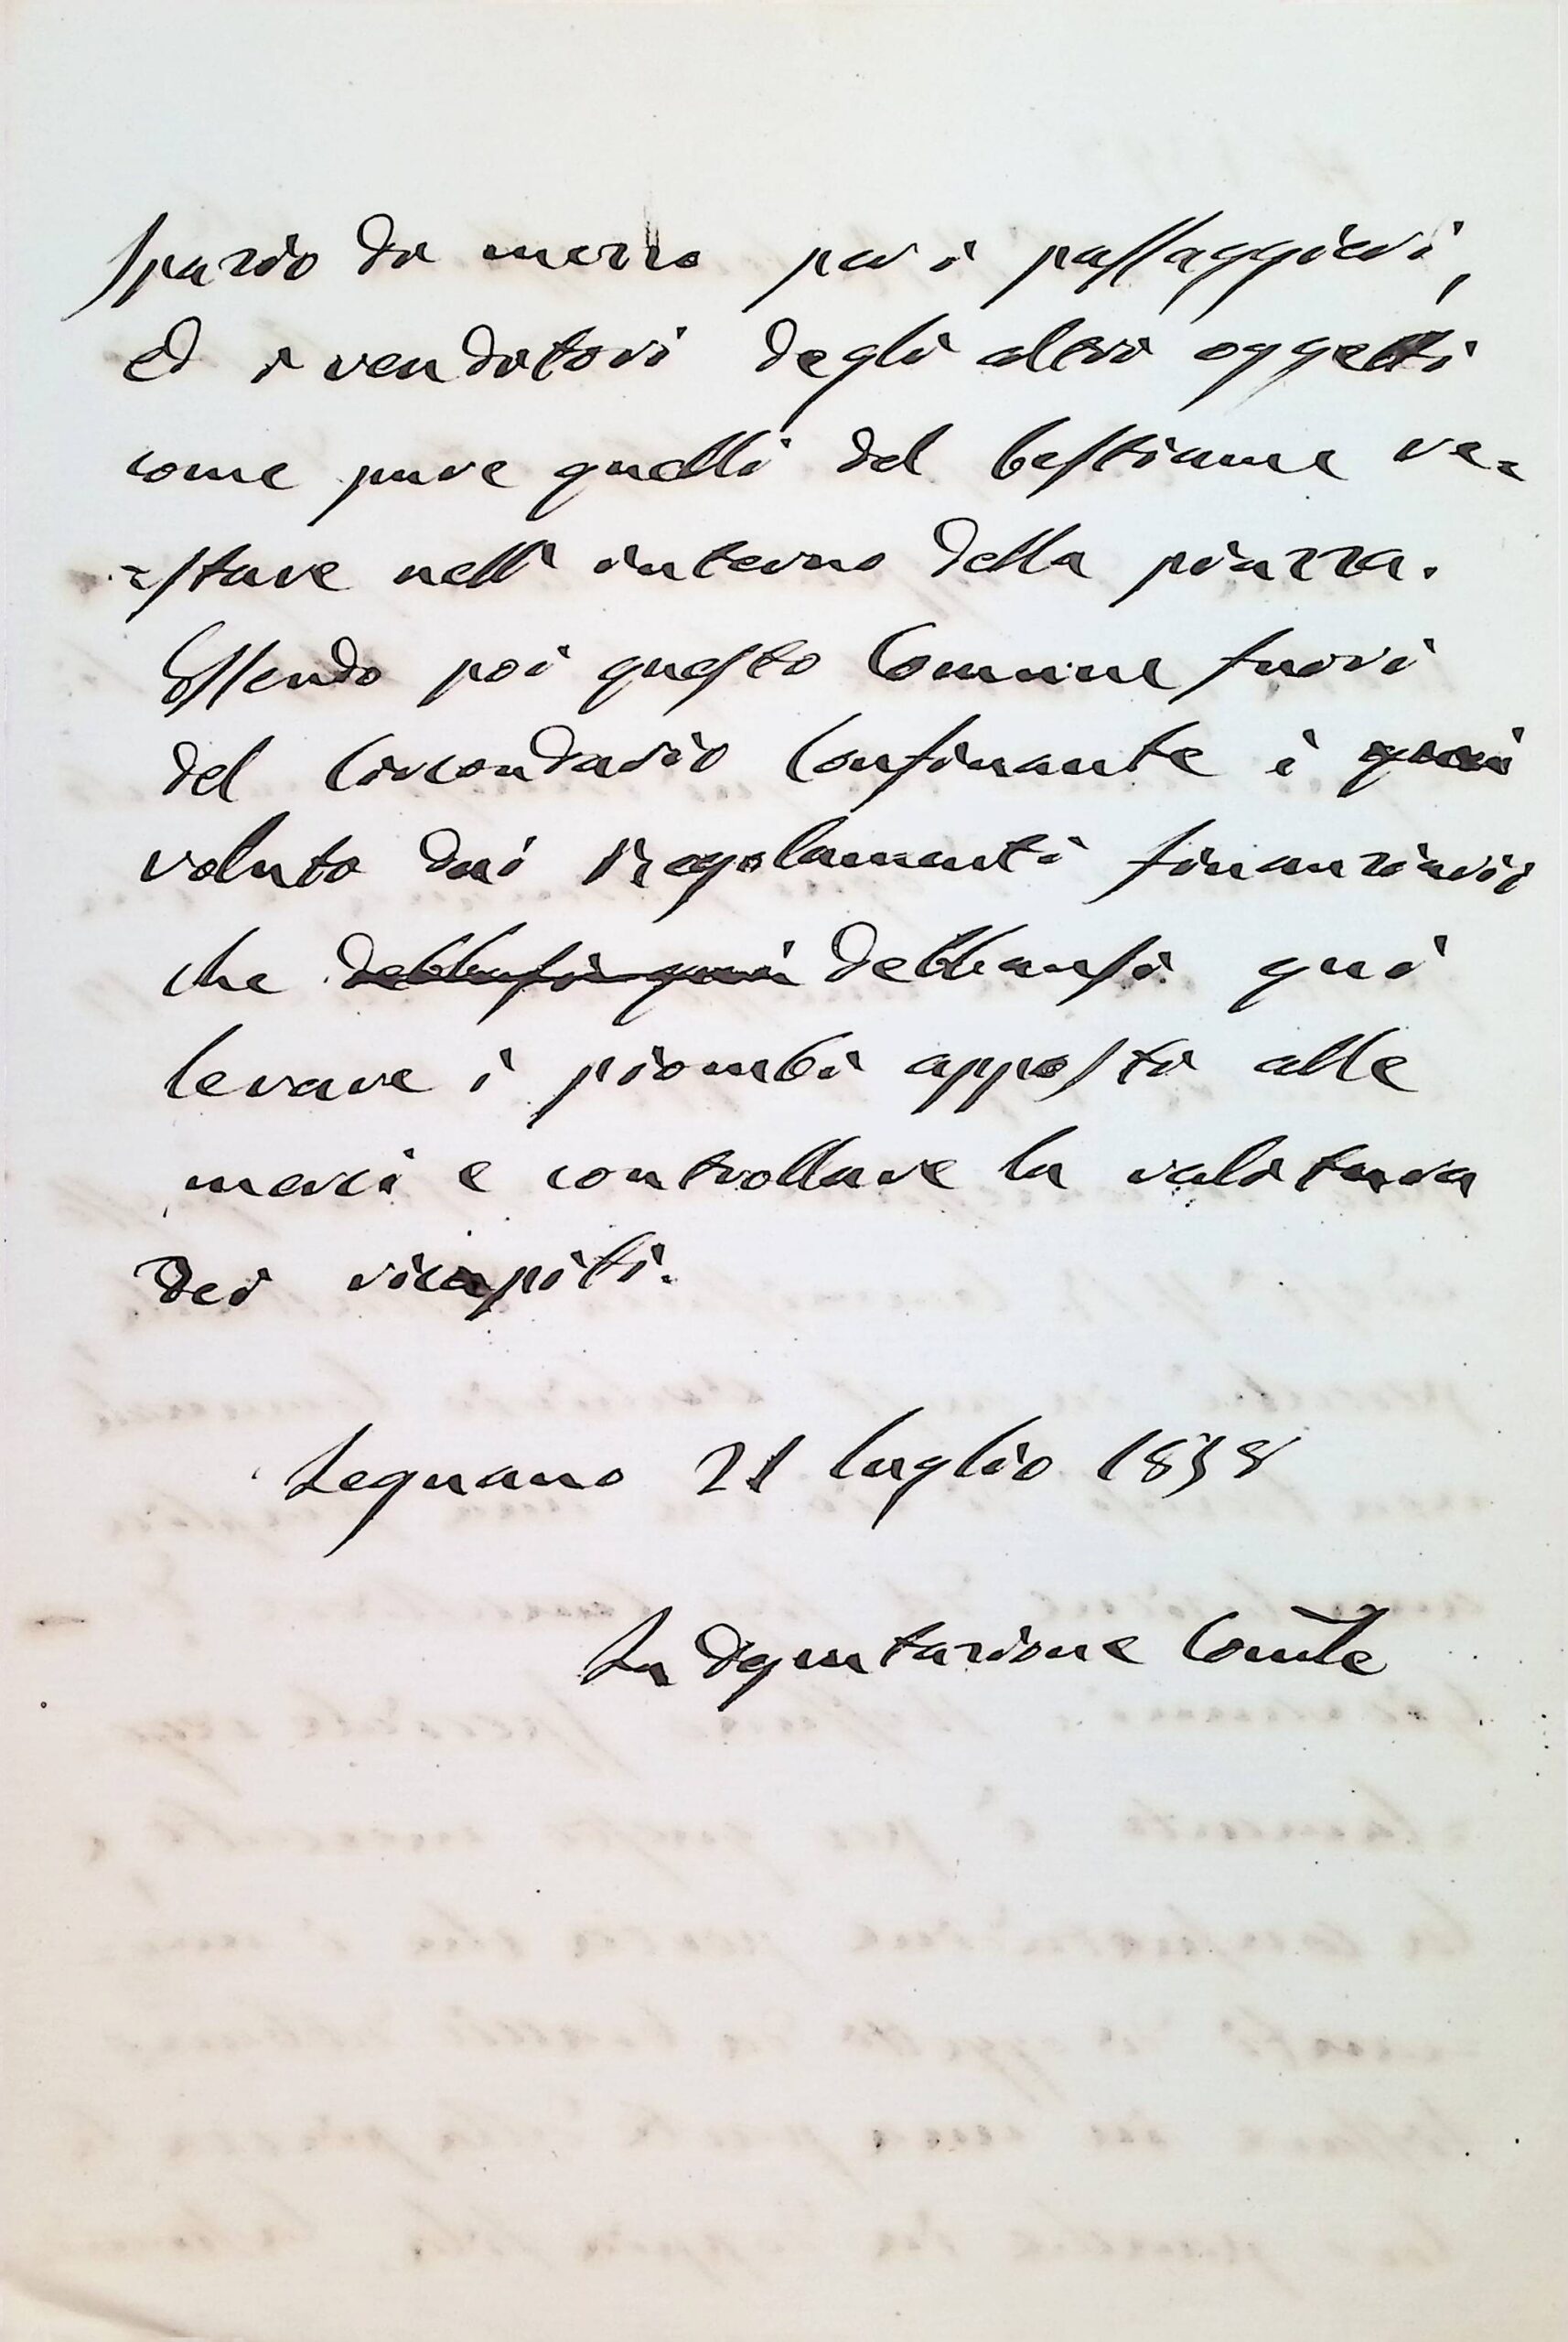 spazio di mezzo per i passaggieri,
ed i venditori degli altri oggetti
come pure quelli del bestiame re=
=stare nell' interno della piazza.
Essendo poi questo Comune fuori
del Circondario Confinante è qui
voluto dai Regolamenti finanziarii
che debbansi qui debbansi qui
levare i piombi apposti alle
merci e controllare la valitura
dei ricapiti.
Legnano 21 luglio 1858
La Deputazione Comle